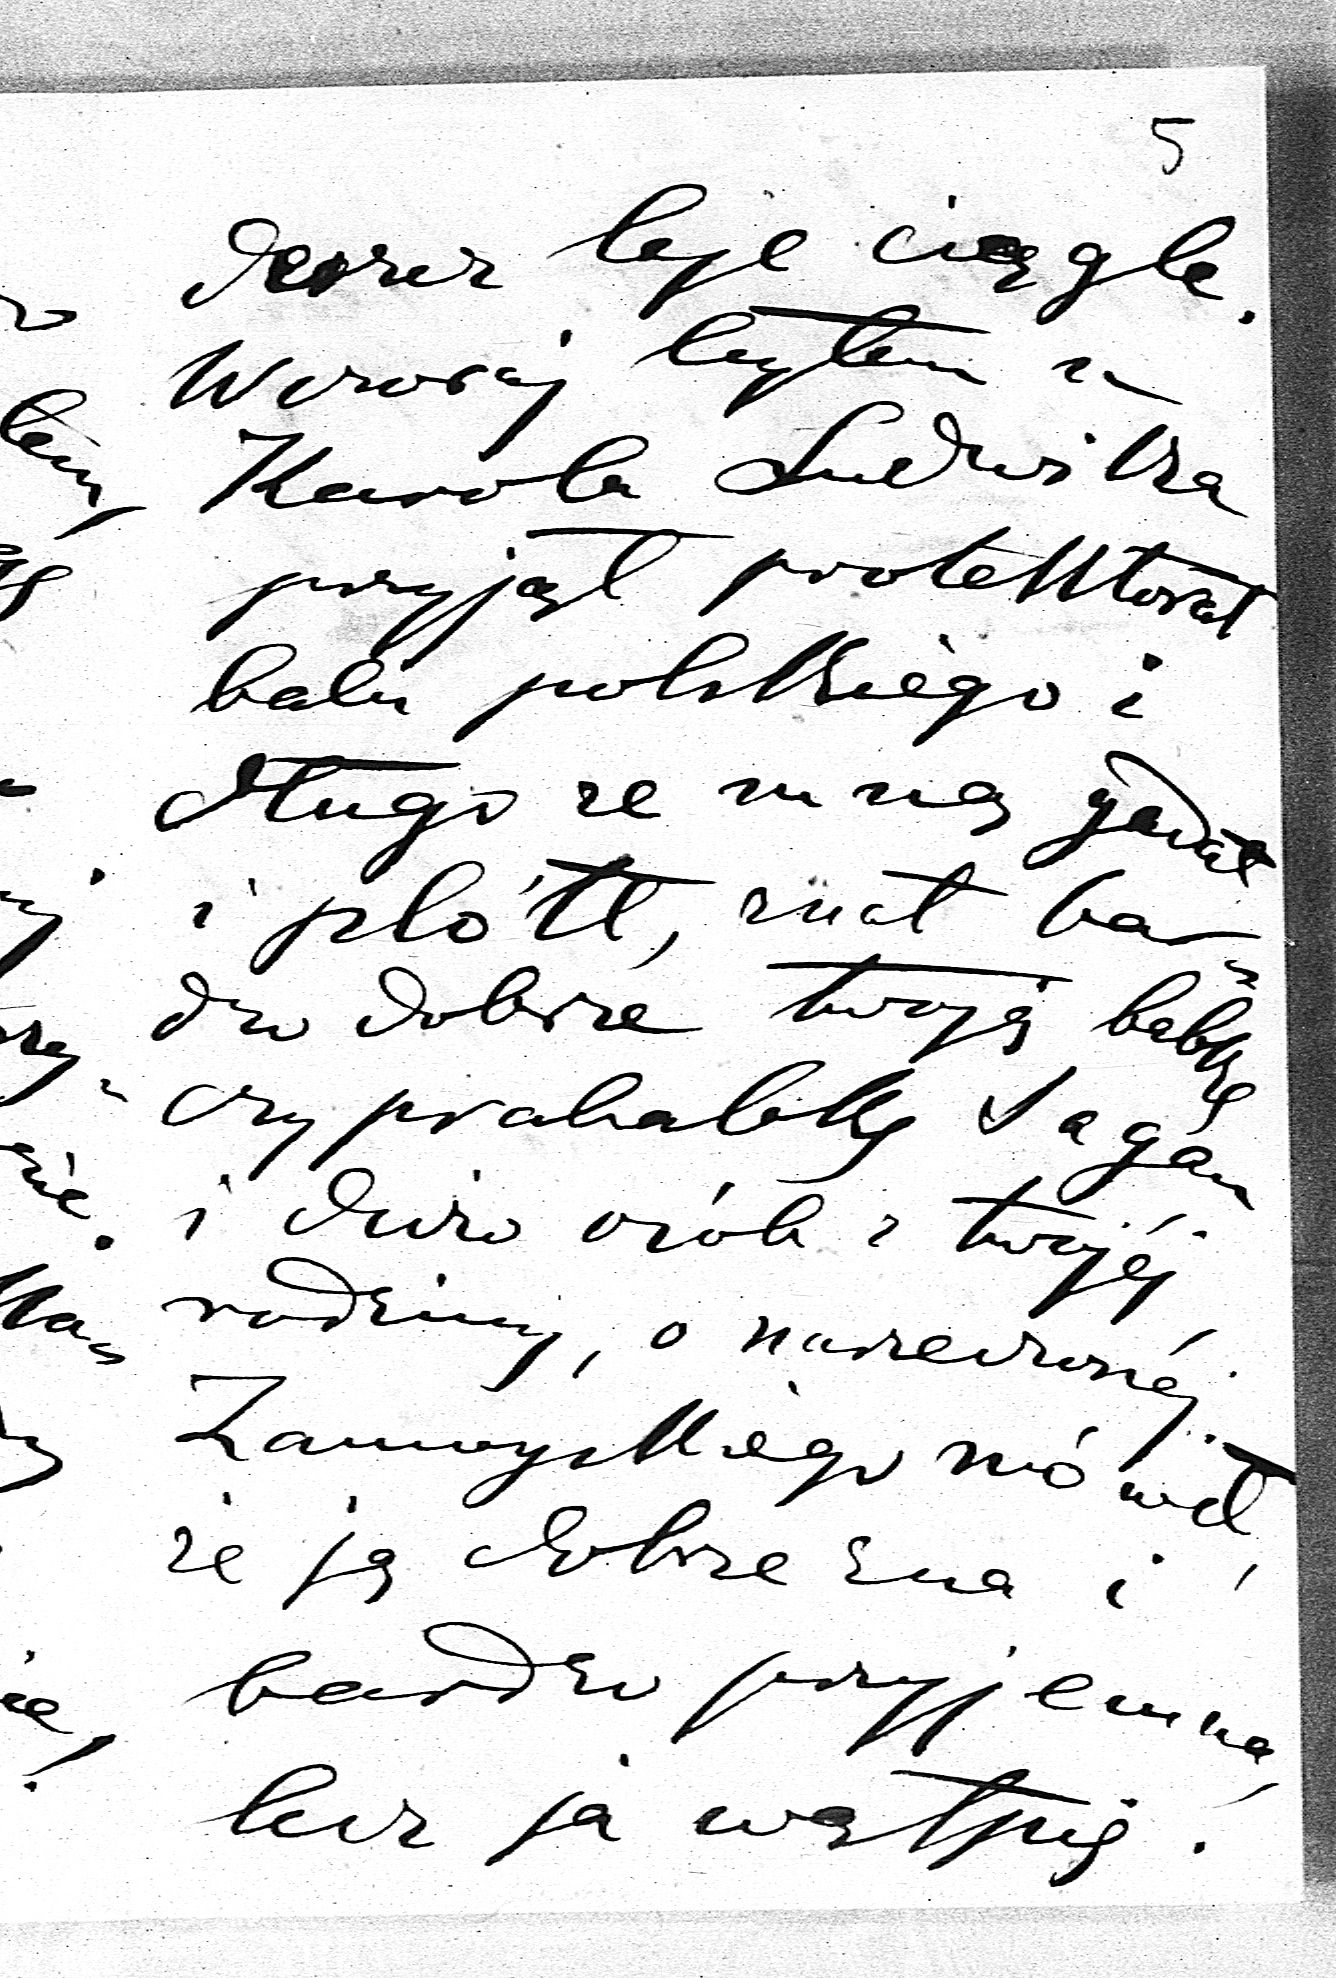 5
deszcz leje ciągle.
Wczoraj byłem u
Karola Ludwika
przyjął protektorat
balu polskiego i
długo ze mną gadał
i plótł, znał bar-
dzo dobrze twoją babkę
czy prababkę Sagan
i dużo osób z twojéj
rodziny, o narzeczonéj
Zamoyskiego mówił,
że ją dobrze zna i
bardzo przyjemna,
lecz ja wątpię.